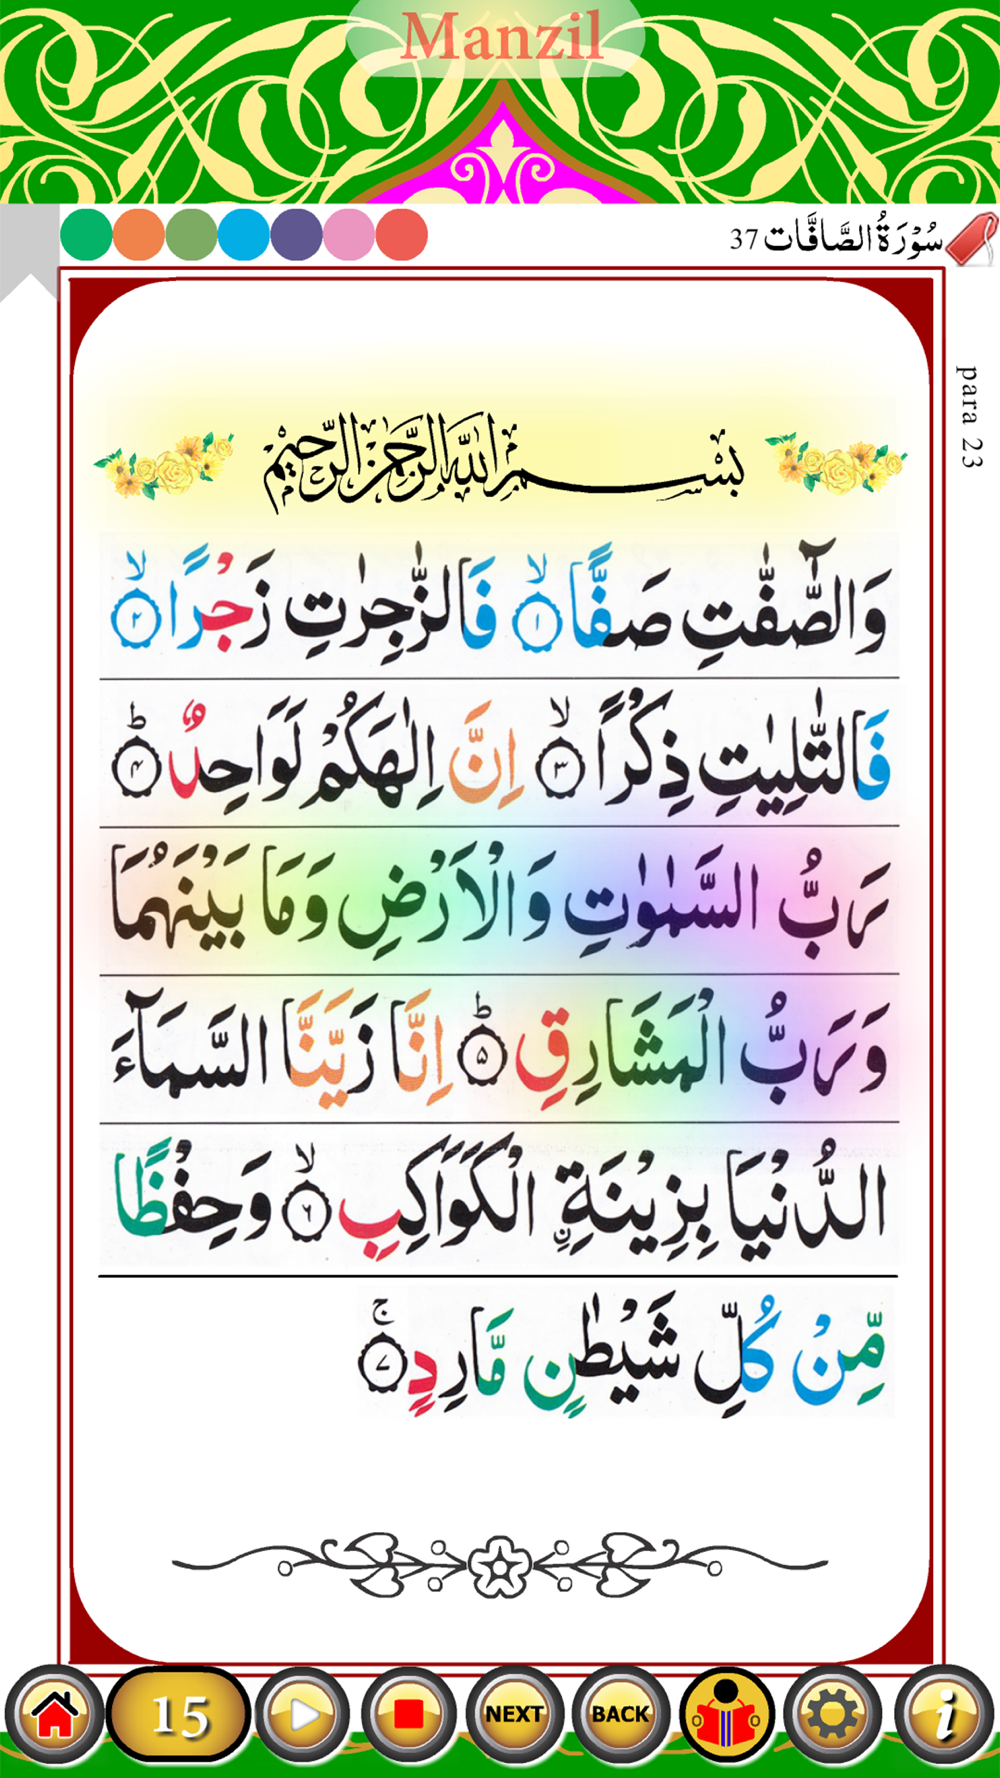 Manzil
سُوْرَةُ الصَّافَّات 37
para 23
بِسْمِ اللهِ الرَّحْمٰنِ الرَّحِيْمِ
وَالصّٰٓفّٰتِ صَفًّا ۙ﴿۱﴾ فَالزّٰجِرٰتِ زَجْرًا ۙ﴿۲﴾
فَالتّٰلِيٰتِ ذِكْرًا ۙ﴿۳﴾ اِنَّ اِلٰهَكُمْ لَوَاحِدٌ ؕ﴿۴﴾
رَبُّ السَّمٰوٰتِ وَالْاَرْضِ وَمَا بَيْنَهُمَا
وَرَبُّ الْمَشَارِقِ ؕ﴿۵﴾ اِنَّا زَيَّنَّا السَّمَآءَ
الدُّنْيَا بِزِيْنَةِ ۨ الْكَوَاكِبِ ۙ﴿۶﴾ وَحِفْظًا
مِّنْ كُلِّ شَيْطٰنٍ مَّارِدٍ ۚ﴿۷﴾
15
NEXT
BACK
i